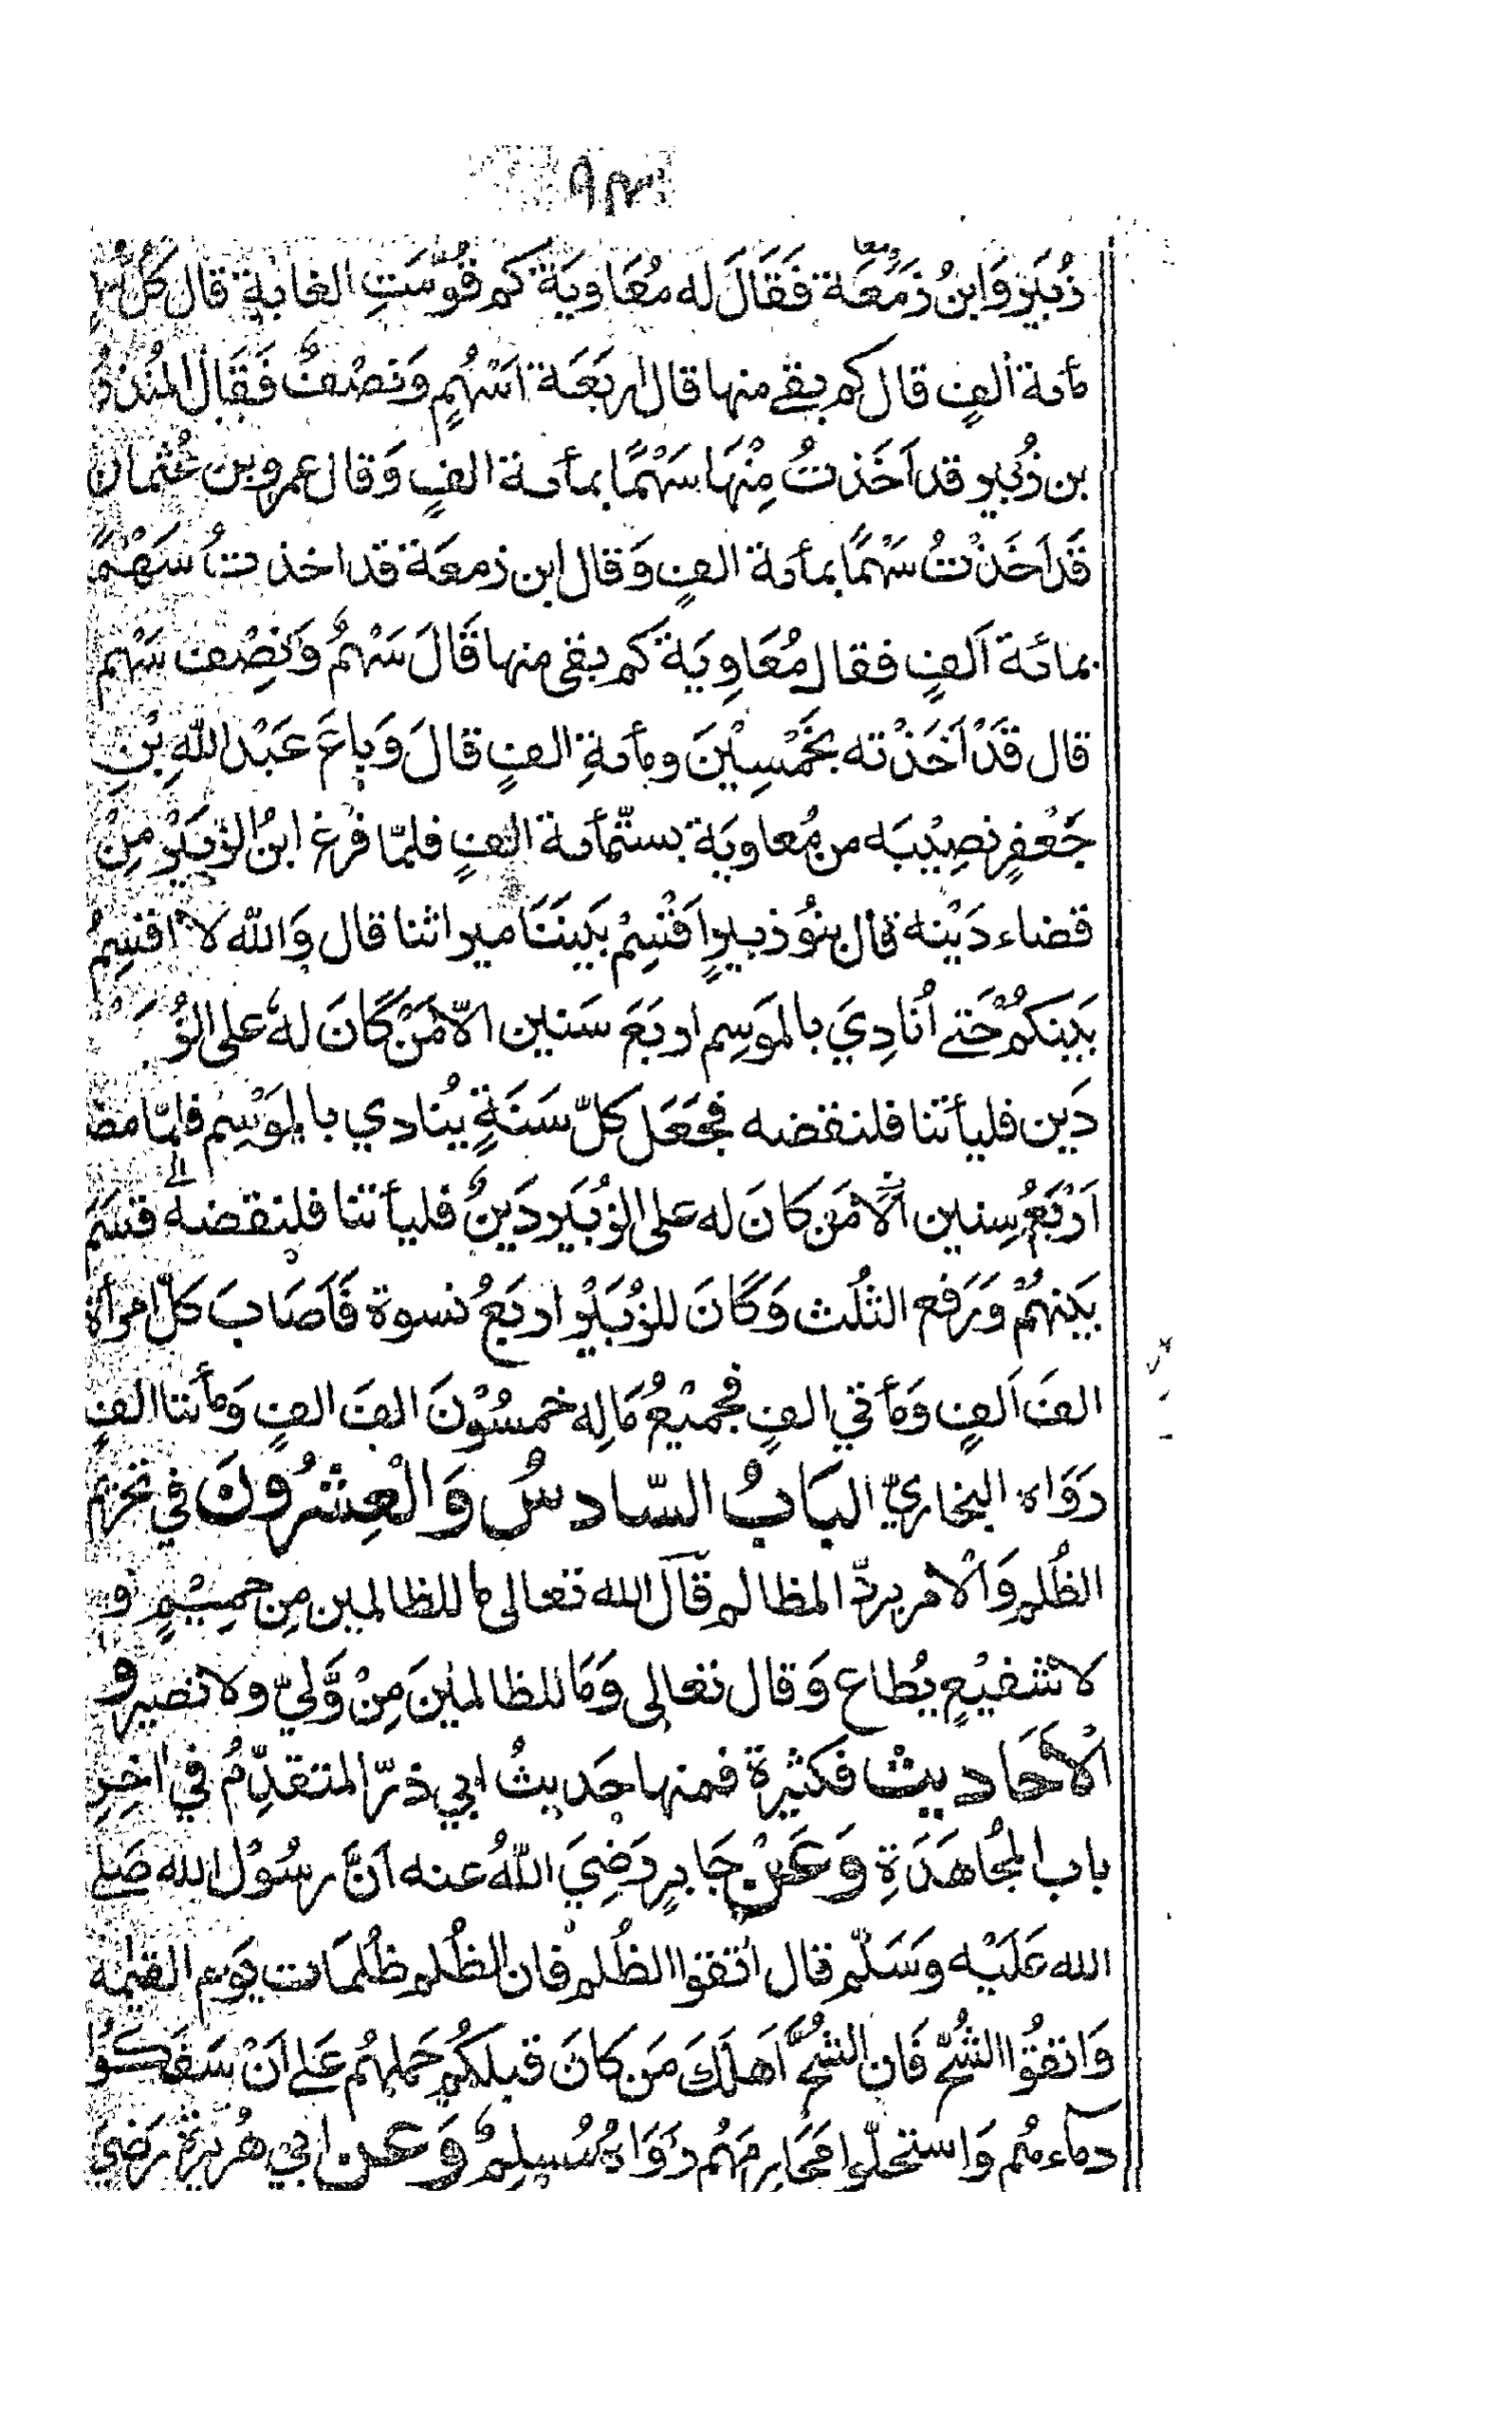 زُبَير وَابنُ زَمْعَة فَقَالَ له مُعَاوِيَة كم قُوِّمَتِ الغابة قال كلّ
مأىة الفٍ قال كم بقي منها قال اربَعَة اَسْهُمٍ وَنصْفٌ فَقَال المُنذر
بن زُبير قد اَخَذتُ مِنْهَا سَهْمًا بمأىة الفٍ وَقال عمرو بن عُثمان
قَد اَخَذْتُ سَهْمًا بمأىة الفٍ وَقال ابن زمعَة قد اخذتُ سَهْمًا
بمائة اَلفٍ فقال مُعَاوِيَة كم بقى منها قَالَ سَهْمٌ وَنِصْف سَهْم
قال قَدْ اَخَذْته بخَمْسِيْنَ ومأىةِ الفٍ قالَ وَبِاعَ عَبْد اللّٰهِ بْنِ
جَعْفرٍ نصِيْبَه من مُعاويَة بستّمأىة الفٍ فلمّا فرغ ابنُ الزّبَيْر مِنْ
قضاء دَيْنه قال بنُو زبيرٍ اَقْسِمْ بَيننَا ميراثنا قال وَاللّٰه لا اقسِمُ
بَينكُمْ حَتى اُنَادِيَ بالمَوسِم اربَعَ سَنين الّا مَنْ كَانَ لهُ على الزُ
دَين فليأتنا فلنقضه فجَعَل كلّ سَنَةٍ يُنادي بالمَوْسِم فلمّا مضى
اَرْبَعُ سِنين اَلّا مَن كانَ له على الزُبَير دَينٌ فليأتنا فلنقضه قسَمَ
بَينهُمْ وَرَفع الثلُث وَكَانَ للزُبَيْر اربَعُ نسوة فَاَصَابَ كلّ امرأة
الفَ اَلفٍ وَمأتي الفٍ فجميْعُ مَالِه خمسُوْنَ الفَ الفٍ وَمأتا الفٍ
رَوَاه البخاريّ البَابُ السّادسُ وَالْعِشرُونَ في تحريم
الظُلم وَالْامر بردّ المظالم قَالَ الله تعالى ما للظالمين مِن حمِيْمٍ وَ
لا شفيْعٍ يُطاع وَقال تعالى وَمَا للظالميْنَ مِنْ وَّليّ ولا نصيرٍ وَ
الْأحَاديثْ فكثيرة فمنها حَديثُ ابي ذرّ المتقدِّمُ في اخِرِ
باب المُجاهَدَةِ وَعَنْ جَابِرٍ رَضِيَ اللّٰهُ عنه اَنَّ رسُوْل الله صَلى
الله عَلَيْه وَسَلّم قال اتقوا الظُلم فان الظُلم ظُلمَات يَوم القيٰمة
وَاتقُوا الشُحّ فَان الشحَّ اَهلَكَ مَن كانَ قبلكُم حَملهُم عَلى اَنْ سَفَكُوا
دماءهُم وَاستحلّوا مَحَارمَهُم رَوَاهُ مُسلِمٌ وَعن ابي هُريْرَة رَضِيَ